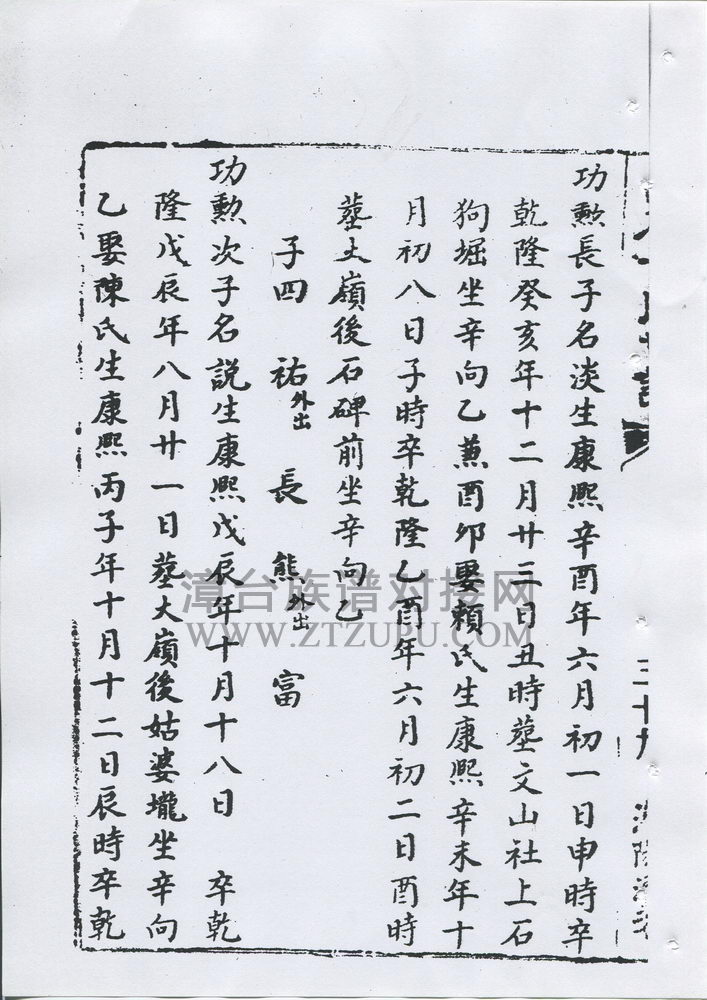 功勲長子名淡生康熙辛酉年六月初一日申時卒
乾隆癸亥年十二月廿三日丑時塟文山社上石
狗堀坐辛向乙兼酉卯娶頼氏生康熙辛未年十
月初八日子時卒乾隆乙酉年六月初二日酉時
塟大嶺後石碑前坐辛向乙
子四 祐外出 長 熊外出 富
功勲次子名説生康熙戊辰年十月十八日 卒乾
隆戊辰年八月廿一日塟大嶺後姑婆壠坐辛向
乙娶陳氏生康熙丙子年十月十二日辰時卒乾
三十九
漳台族谱对接网
WWW.ZTZUPU.COM